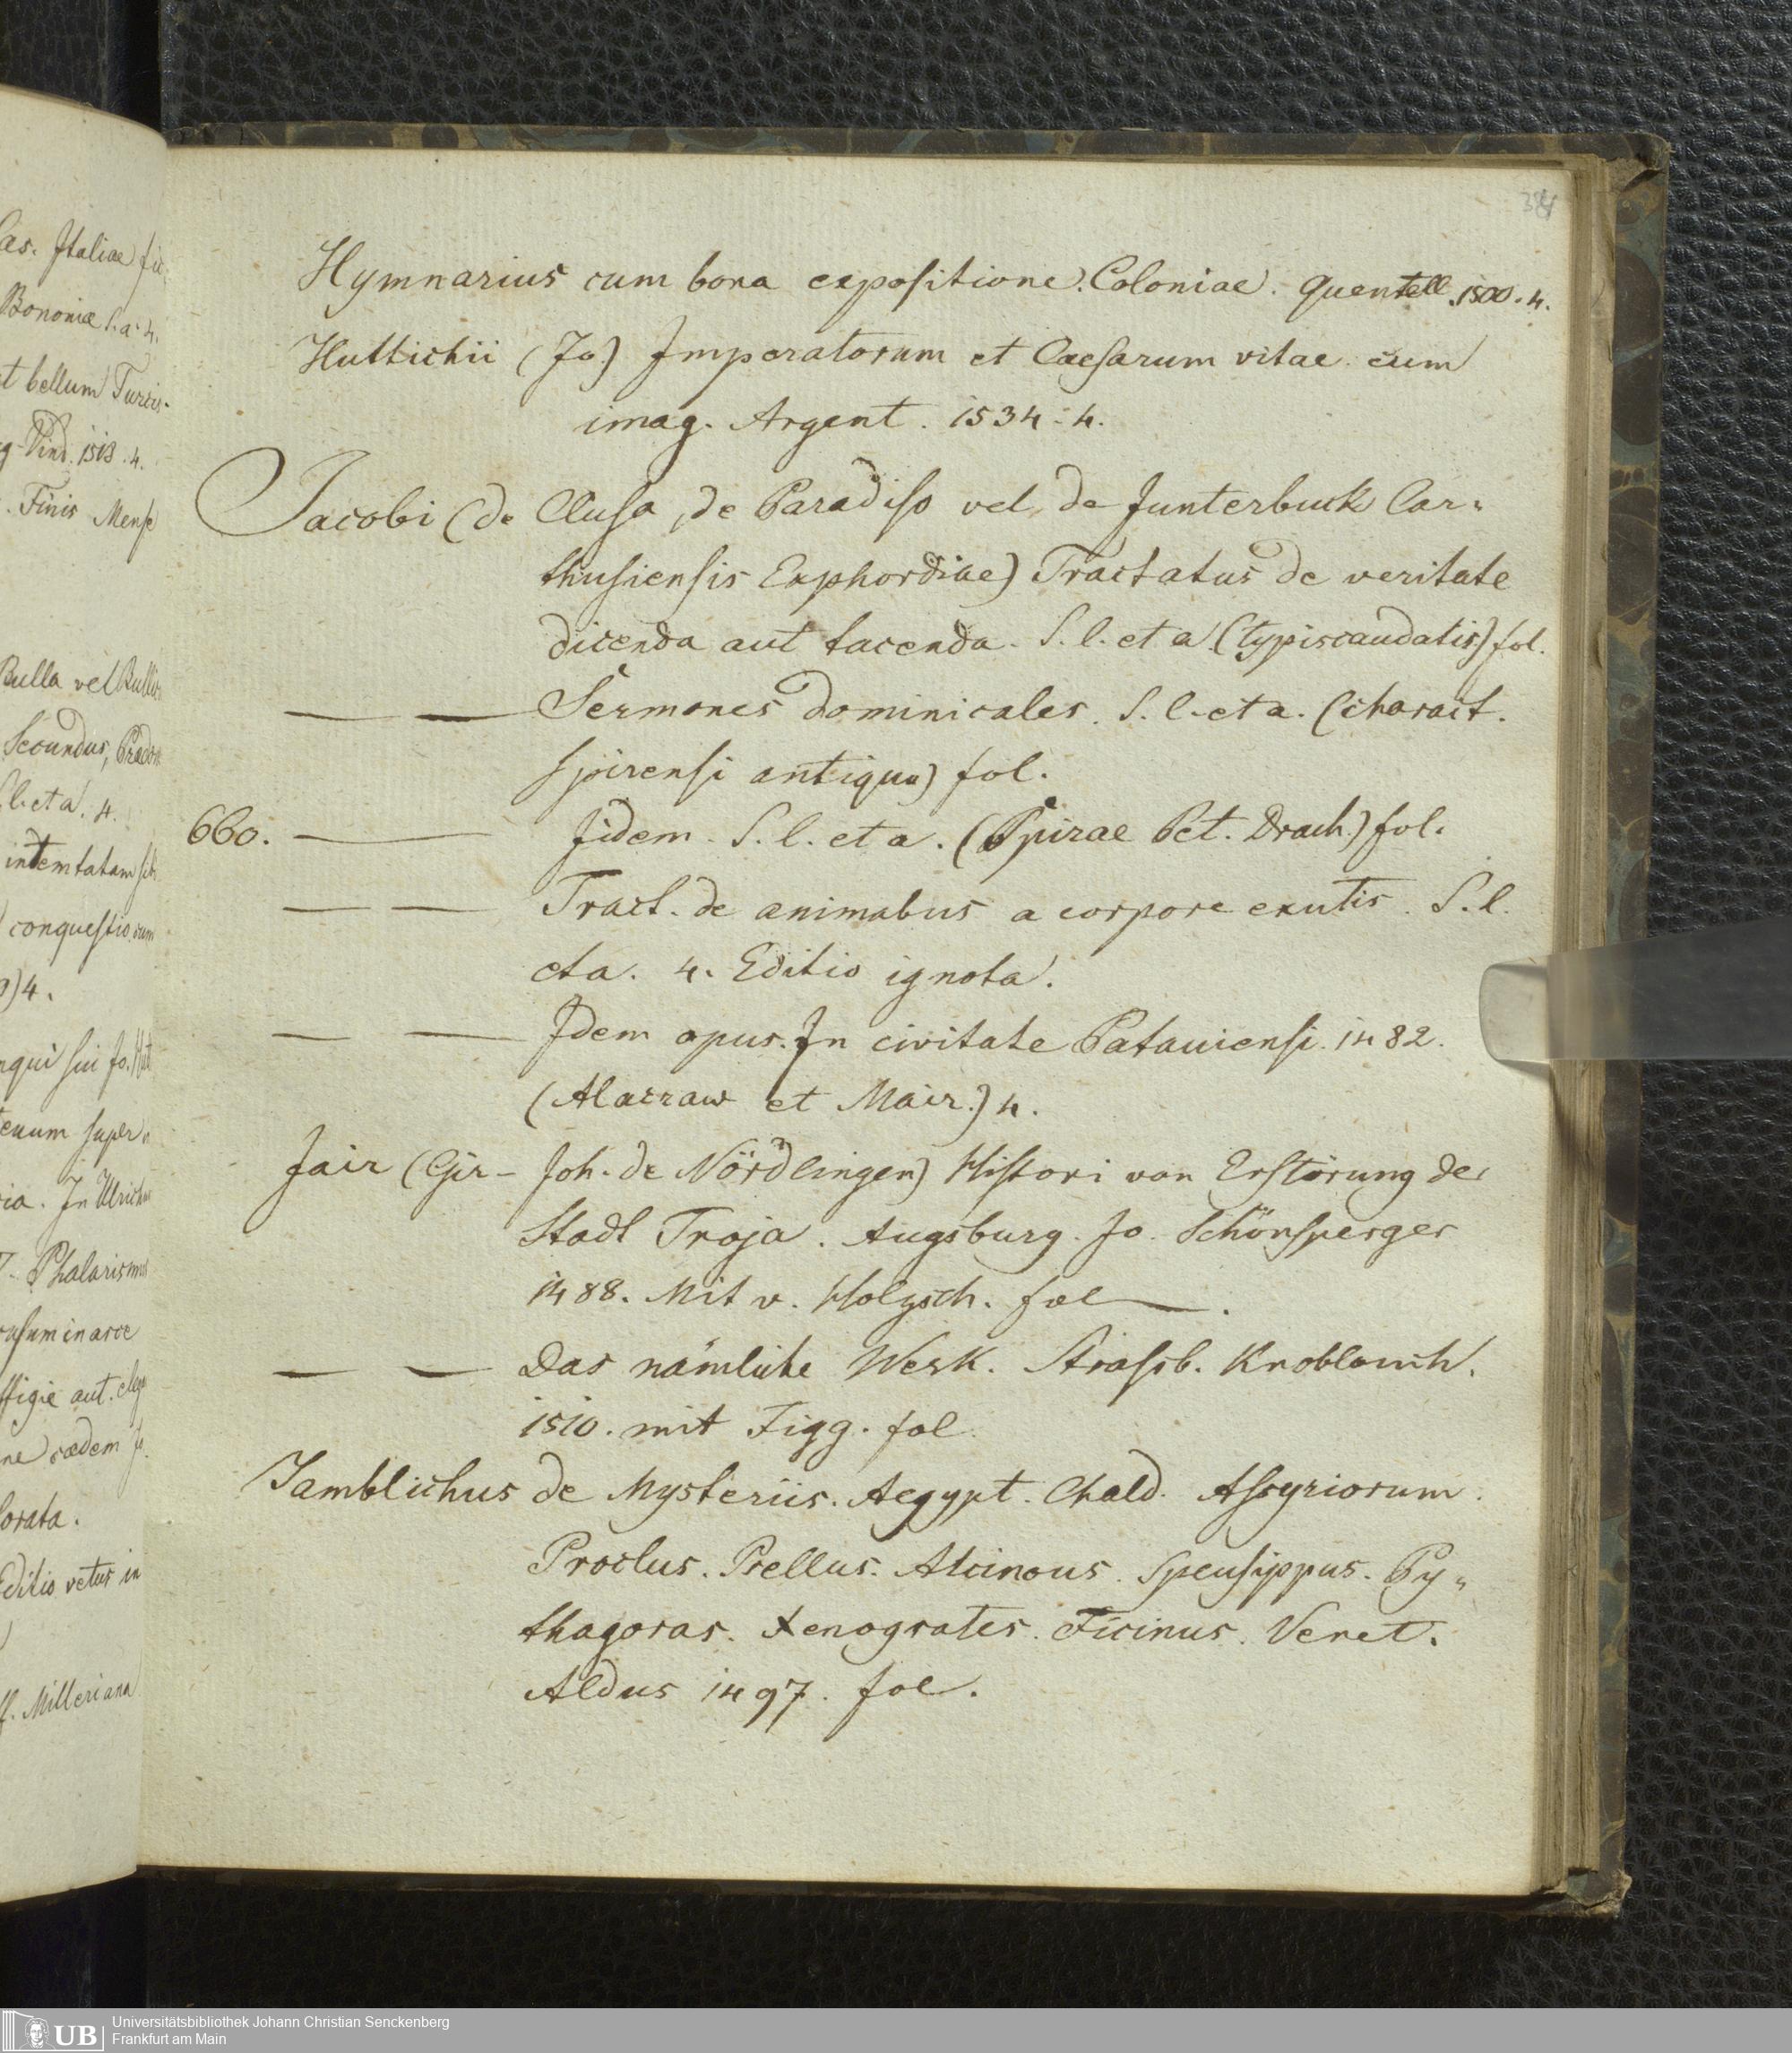 Cas. Italiae
Bononiae s. a. 4.
bellum Turcis-
Vind. 1513. 4.
Finis Mense
Bulla vel
Secundus,
l. et a. 4.
intemtatam
conquestio cum
4.
qui sui Jo.
super
ia. In Ulrichu
Phalarismus
in arce
ffigie aut.
cædem
orata.
Editio vetus in
f. Milleriana
384
Hymnarius cum bona expositione. Coloniae. Quentell. 1500. 4.
Huttichii (Jo) Imperatorum et Caesarum vitae cum
imag. Argent. 1534. 4.
Jacobi (de Clusa, de Paradiso vel de Junterbuck Car-
thusiensis Exphordiae) Tractatus de veritate
dicenda aut tacenda. S. l. et a. (typis caudatis) fol.
— — Sermones dominicales. S. l. et a. (charact.
spirensi antiquo) fol.
660. — Iidem. S. l. et a. (Spirae Pet. Drach.) fol.
— — Tract. de animabus a corpore exutis. S. l.
et a. 4. Editio ignota.
— — Idem opus. In civitate Patauiensi. 1482.
(Alacraw et Mair.) 4.
Jair (Gir- Joh. de Nördlingen) Histori von Erstörung der
Stadt Troja. Augsburg. Jo. Schönsperger
1488. Mit v. Holzsch. fol.
— — Das nämliche Werk. Strassb. Knoblauch.
1510. mit Figg. fol.
Jamblichus de Mysteriis. Aegypt. Chald. Assyriorum.
Proclus. Psellus. Alcinous. Speusippus. Py-
thagoras. Xenogrates. Ficinus. Venet.
Aldus 1497. fol.
UB
Universitätsbibliothek Johann Christian Senckenberg
Frankfurt am Main